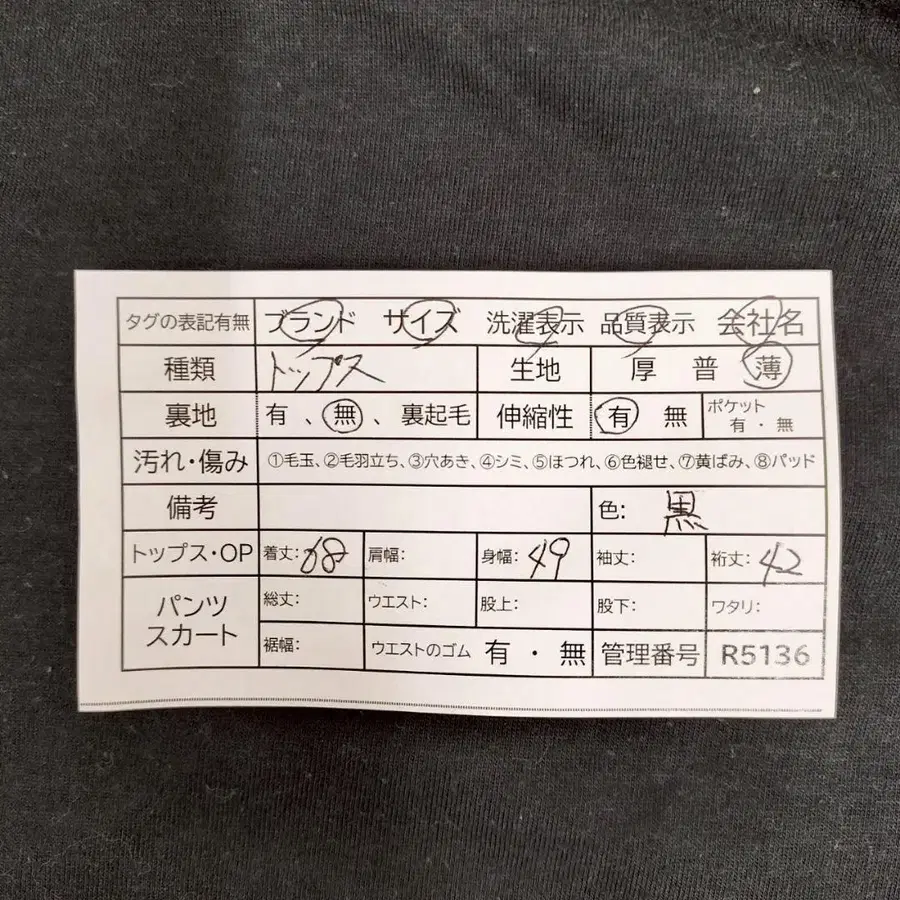 タグの表記有無 ブランド サイズ 洗濯表示 品質表示 会社名
種類 トップス 生地 厚 普 薄
裏地 有、無、裏起毛 伸縮性 有 無 ポケット 有・無
汚れ・傷み ①毛玉、②毛羽立ち、③穴あき、④シミ、⑤ほつれ、⑥色褪せ、⑦黄ばみ、⑧パッド
備考 色: 黒
トップス・OP 着丈: 68 肩幅: 身幅: 49 袖丈: 裄丈: 42
パンツ スカート 総丈: ウエスト: 股上: 股下: ワタリ:
裾幅: ウエストのゴム 有・無 管理番号 R5136